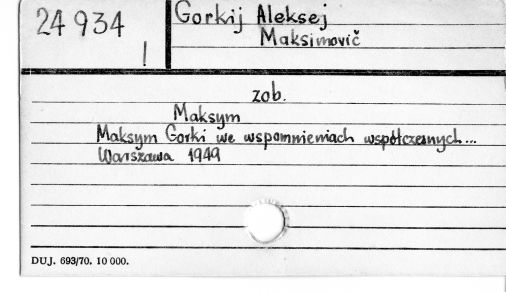 24 934
I
Gorkij Aleksej
Maksimovič
zob.
Maksym
Maksym Gorki we wspomnieniach współczesnych...
Warszawa 1949
DUJ. 693/70. 10 000.